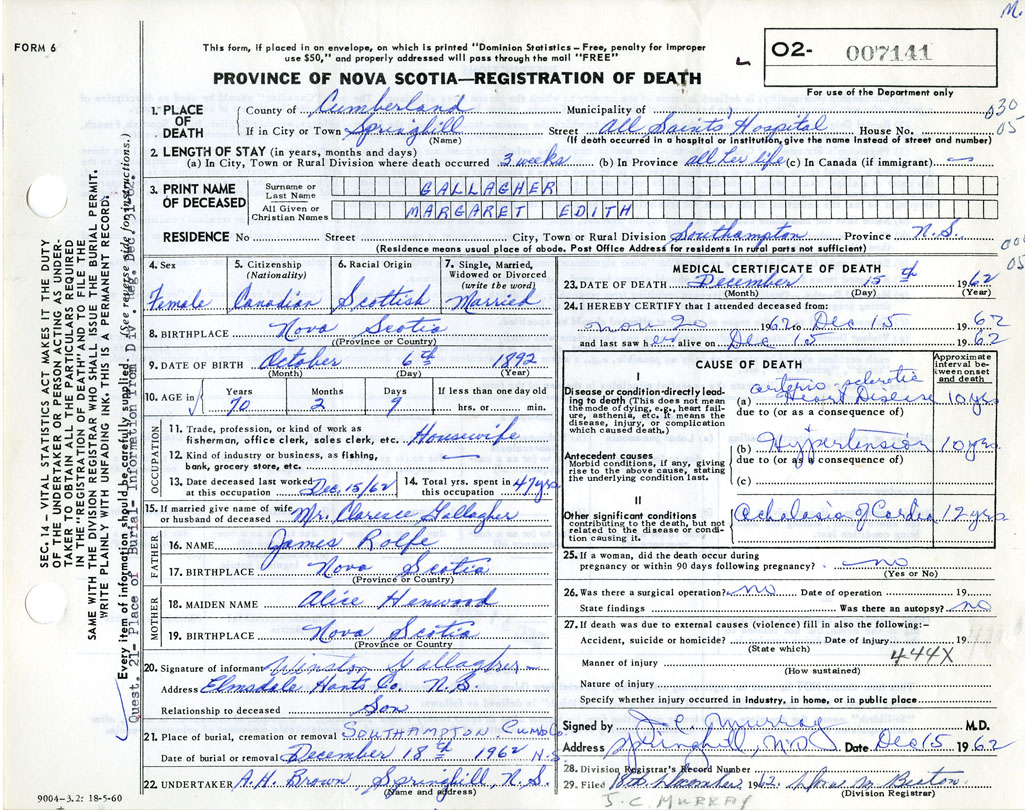 M.
FORM 6
This form, if placed in an envelope, on which is printed "Dominion Statistics – Free, penalty for improper
use $50," and properly addressed will pass through the mail "FREE"
PROVINCE OF NOVA SCOTIA—REGISTRATION OF DEATH
02- 007141
For use of the Department only
1. PLACE OF DEATH
County of Cumberland Municipality of
If in City or Town Springhill Street All Saints Hospital House No.
(Name) (If death occurred in a hospital or institution, give the name instead of street and number)
030
05
2. LENGTH OF STAY (in years, months and days)
(a) In City, Town or Rural Division where death occurred 3 weeks (b) In Province all her life (c) In Canada (if immigrant) —
3. PRINT NAME OF DECEASED
Surname or Last Name GALLAGHER
All Given or Christian Names MARGARET EDITH
RESIDENCE No Street City, Town or Rural Division Southampton Province N.S.
(Residence means usual place of abode. Post Office Address for residents in rural parts not sufficient)
05
4. Sex Female
5. Citizenship (Nationality) Canadian
6. Racial Origin Scottish
7. Single, Married, Widowed or Divorced (write the word) Married
8. BIRTHPLACE Nova Scotia
(Province or Country)
9. DATE OF BIRTH October 6th 1892
(Month) (Day) (Year)
10. AGE in Years Months Days If less than one day old
70 2 9 hrs. or min.
OCCUPATION
11. Trade, profession, or kind of work as
fisherman, office clerk, sales clerk, etc. Housewife
12. Kind of industry or business, as fishing,
bank, grocery store, etc. —
13. Date deceased last worked at this occupation Dec. 15/62
14. Total yrs. spent in this occupation 47 yrs
15. If married give name of wife
or husband of deceased Mr. Clarence Gallagher
FATHER
16. NAME James Rolfe
17. BIRTHPLACE Nova Scotia
(Province or Country)
MOTHER
18. MAIDEN NAME Alice Henwood
19. BIRTHPLACE Nova Scotia
(Province or Country)
20. Signature of informant Winston Gallagher
Address Elmsdale Hants Co. N.S.
Relationship to deceased Son
21. Place of burial, cremation or removal SOUTHAMPTON CUMB Co.
Date of burial or removal December 18th 1962 N.S.
22. UNDERTAKER A.H. Brown Springhill, N.S.
(Name and address)
9004-3.2: 18-5-60
MEDICAL CERTIFICATE OF DEATH
23. DATE OF DEATH December 15th 1962
(Month) (Day) (Year)
24. I HEREBY CERTIFY that I attended deceased from:
Nov 20 1962 to Dec 15 1962
and last saw her alive on Dec 15 1962
CAUSE OF DEATH
Approximate interval between onset and death
I
Disease or condition directly leading to death (This does not mean the mode of dying, e.g., heart failure, asthenia, etc. It means the disease, injury, or complication which caused death.)
(a) arterio sclerotic
Heart Disease 10 yrs
due to (or as a consequence of)
Antecedent causes
Morbid conditions, if any, giving rise to the above cause, stating the underlying condition last.
(b) Hypertension 10 yrs.
due to (or as a consequence of)
(c)
II
Other significant conditions
contributing to the death, but not related to the disease or condition causing it.
Achalasia of Cardia 12 yrs
25. If a woman, did the death occur during
pregnancy or within 90 days following pregnancy? no
(Yes or No)
26. Was there a surgical operation? no Date of operation 19
State findings Was there an autopsy? no
27. If death was due to external causes (violence) fill in also the following:-
Accident, suicide or homicide? Date of injury 19
(State which)
444X
Manner of injury
(How sustained)
Nature of injury
Specify whether injury occurred in industry, in home, or in public place
Signed by J.C. Murray M.D.
Address Springhill, N.S. Date Dec 15 1962
28. Division Registrar's Record Number
29. Filed 18th December 1962 Beaton
(Division Registrar)
J.C. MURRAY
SEC. 4 – VITAL STATISTICS ACT MAKES IT THE DUTY
OF THE UNDERTAKER OR PERSON ACTING AS UNDERTAKER TO OBTAIN ALL THE PARTICULARS REQUIRED
IN THE "REGISTRATION OF DEATH" AND TO FILE THE
SAME WITH THE DIVISION REGISTRAR WHO SHALL ISSUE THE BURIAL PERMIT.
WRITE PLAINLY WITH UNFADING INK. THIS IS A PERMANENT RECORD.
Every item of information should be carefully supplied (See reverse side for instructions.)
Quest. 21- Place of Burial- Information from Div. Reg. Dec. 31/62.